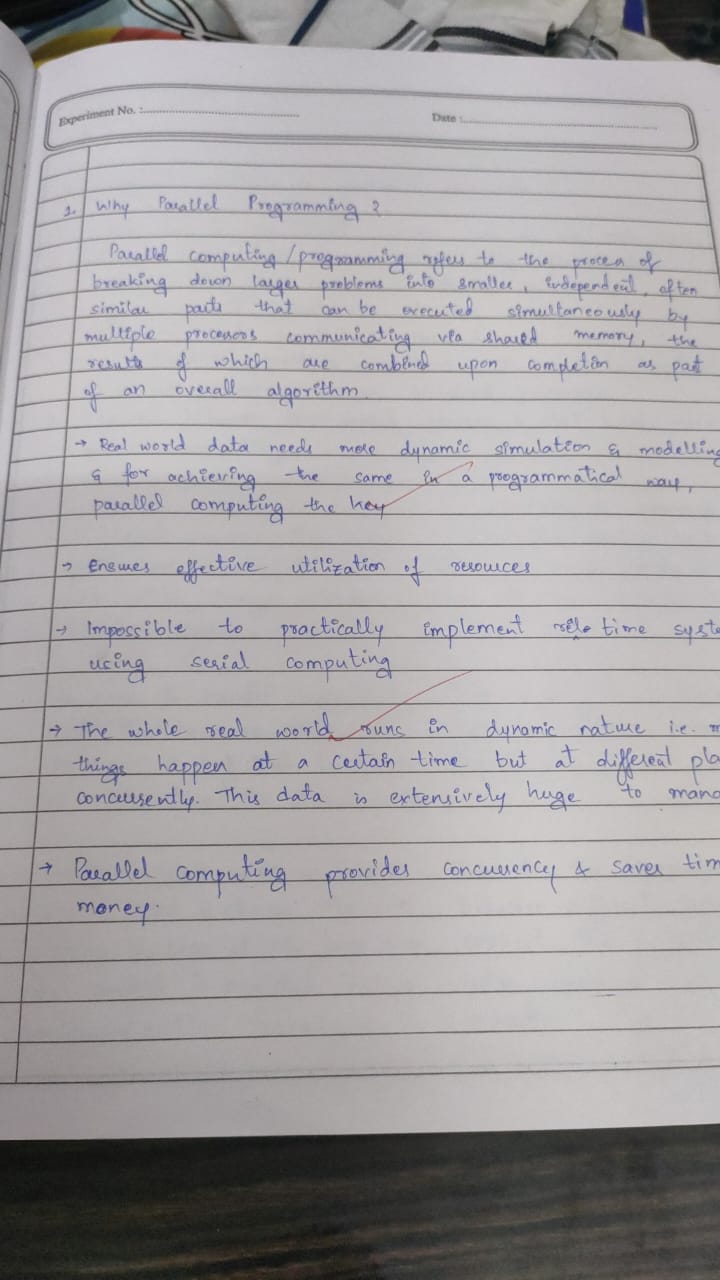 Experiment No. :
Date :
1. Why Parallel Programming ?
Parallel computing / programming refers to the process of
breaking down larger problems into smaller, independent, often
similar parts that can be executed simultaneously by
multiple processors communicating via shared memory, the
results of which are combined upon completion as part
of an overall algorithm.
→ Real world data needs more dynamic simulation & modelling
& for achieving the same in a programmatical way,
parallel computing the key
→ Ensures effective utilization of resources
→ Impossible to practically implement time
using serial computing
→ The whole real world runs in dynamic nature i.e.
things happen at a certain time but at different
concurrently. This data is extensively huge to
→ Parallel computing provides concurrency & saves
money.